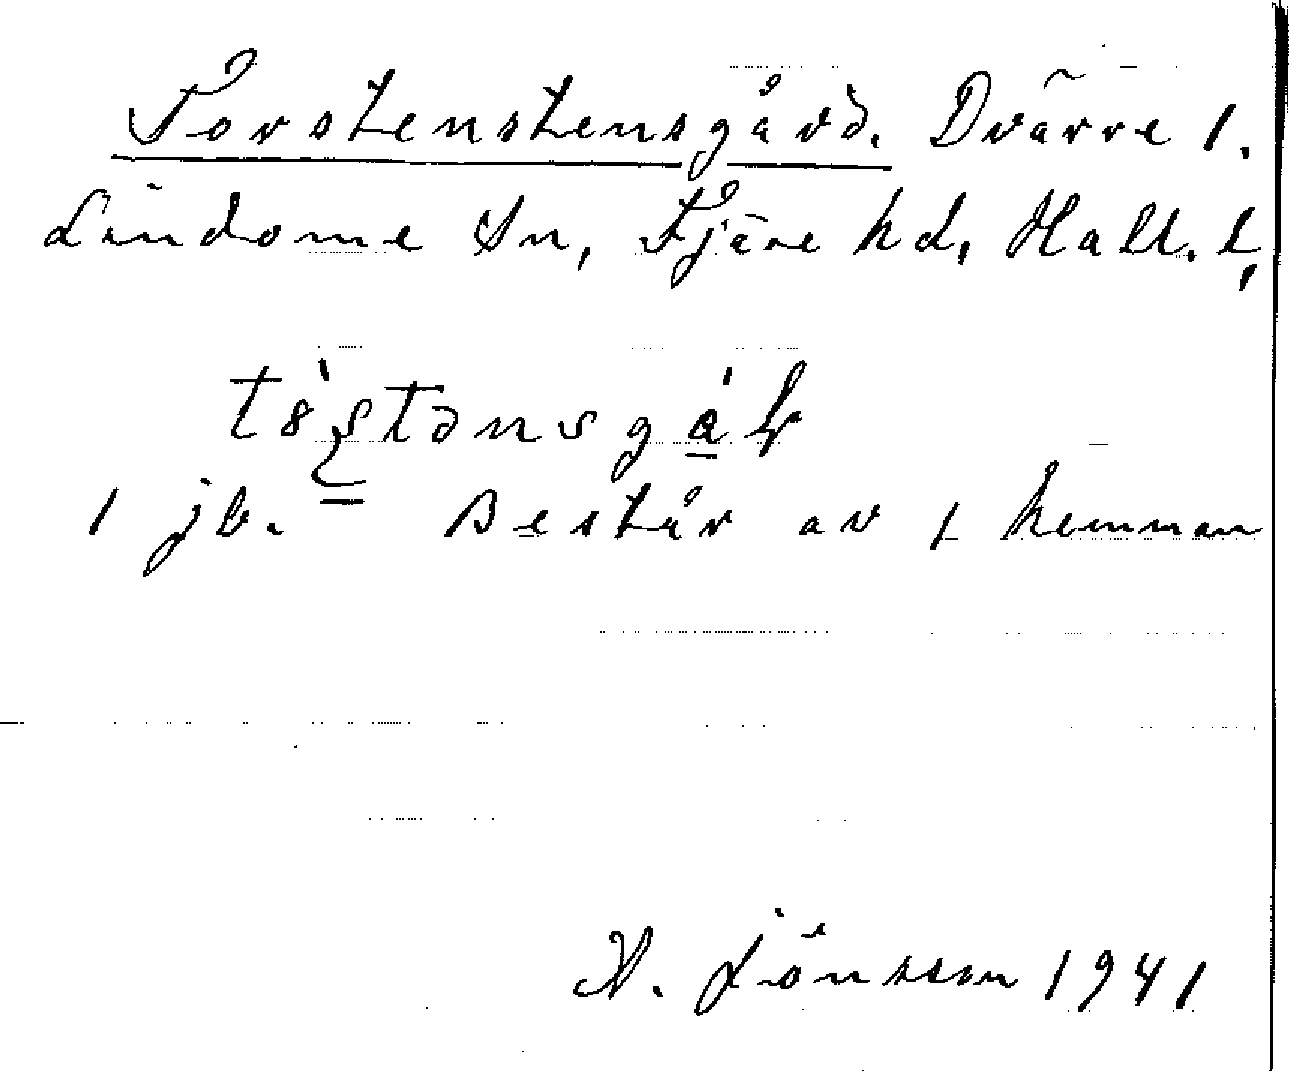 Torstenstensgård. Dvärre 1.
Lindome Sn, Fjäre hd, Hall. l,
1 jb. Består av 1 hemman
N. Jönsson 1941